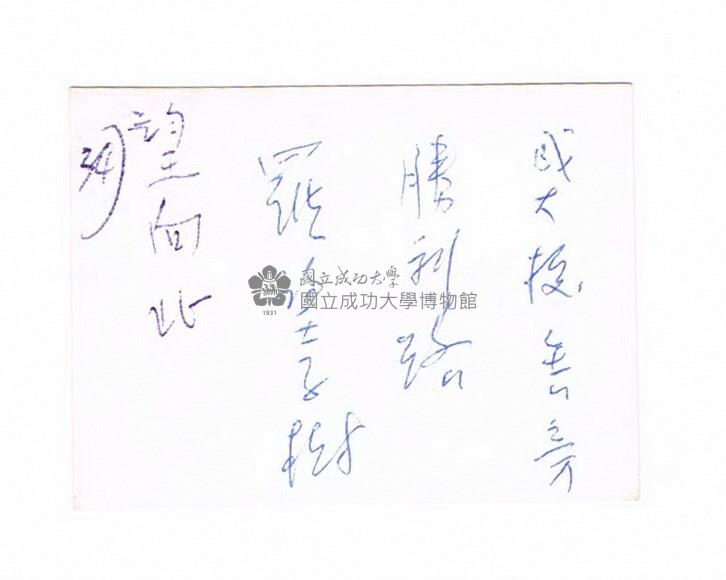 成大校舍旁
勝利路
羅望子樹
望向北
國立成功大學
國立成功大學博物館
1931